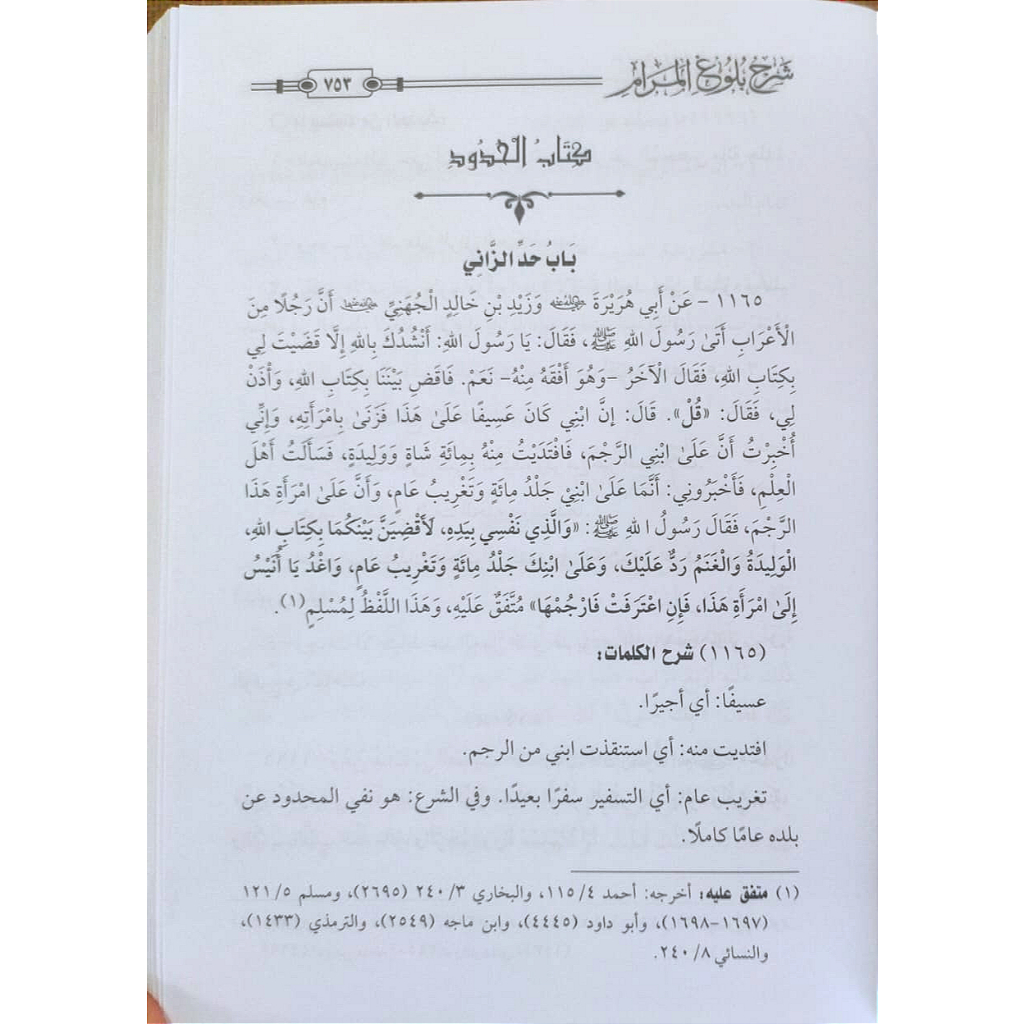 شَرْحُ بُلُوغِ المَرَامِ
٧٥٣
كِتَابُ الْحُدُودِ
بَابُ حَدِّ الزَّانِي
١١٦٥ - عَنْ أَبِي هُرَيْرَةَ رضي الله عنه وَزَيْدِ بْنِ خَالِدٍ الْجُهَنِيِّ رضي الله عنهما أَنَّ رَجُلًا مِنَ
الْأَعْرَابِ أَتَىٰ رَسُولَ اللهِ ﷺ، فَقَالَ: يَا رَسُولَ اللهِ: أَنْشُدُكَ بِاللهِ إِلَّا قَضَيْتَ لِي
بِكِتَابِ اللهِ، فَقَالَ الْآخَرُ -وَهُوَ أَفْقَهُ مِنْهُ- نَعَمْ. فَاقْضِ بَيْنَنَا بِكِتَابِ اللهِ، وَأْذَنْ
لِي، فَقَالَ: «قُلْ». قَالَ: إِنَّ ابْنِي كَانَ عَسِيفًا عَلَىٰ هَذَا فَزَنَىٰ بِامْرَأَتِهِ، وَإِنِّي
أُخْبِرْتُ أَنَّ عَلَىٰ ابْنِي الرَّجْمَ، فَافْتَدَيْتُ مِنْهُ بِمِائَةِ شَاةٍ وَوَلِيدَةٍ، فَسَأَلْتُ أَهْلَ
الْعِلْمِ، فَأَخْبَرُونِي: أَنَّمَا عَلَىٰ ابْنِيْ جَلْدُ مِائَةٍ وَتَغْرِيبُ عَامٍ، وَأَنَّ عَلَىٰ امْرَأَةِ هَذَا
الرَّجْمَ، فَقَالَ رَسُولُ ا للهِ ﷺ: «وَالَّذِي نَفْسِي بِيَدِهِ، لَأَقْضِيَنَّ بَيْنَكُمَا بِكِتَابِ اللهِ،
الْوَلِيدَةُ وَالْغَنَمُ رَدٌّ عَلَيْكَ، وَعَلَىٰ ابْنِكَ جَلْدُ مِائَةٍ وَتَغْرِيبُ عَامٍ، وَاغْدُ يَا أُنَيْسُ
إِلَىٰ امْرَأَةِ هَذَا، فَإِنِ اعْتَرَفَتْ فَارْجُمْهَا» مُتَّفَقٌ عَلَيْهِ، وَهَذَا اللَّفْظُ لِمُسْلِمٍ(١).
(١١٦٥) شرح الكلمات:
عسيفًا: أي أجيرًا.
افتديت منه: أي استنقذت ابني من الرجم.
تغريب عام: أي التسفير سفرًا بعيدًا. وفي الشرع: هو نفي المحدود عن
بلده عامًا كاملًا.
(١) متفق عليه: أخرجه: أحمد ١١٥/٤، والبخاري ٢٤٠/٣ (٢٦٩٥)، ومسلم ١٢١/٥
(١٦٩٧-١٦٩٨)، وأبو داود (٤٤٤٥)، وابن ماجه (٢٥٤٩)، والترمذي (١٤٣٣)،
والنسائي ٢٤٠/٨.